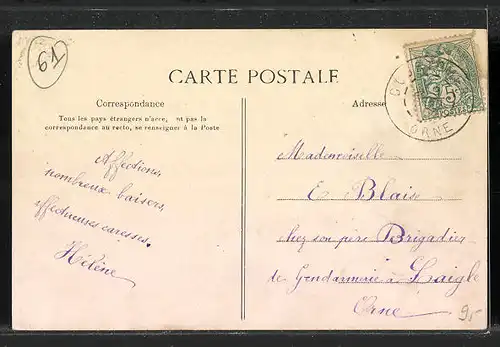 61
CARTE POSTALE
Correspondance
Tous les pays étrangers n'acce, nt pas la
correspondance au recto, se renseigner à la Poste
Adresse
5
ORNE
Affections,
nombreux baisers,
affectueuses caresses.
Hélène
Mademoiselle
E Blais
chez son père Brigadier
de Gendarmerie à Laigle
Orne
95